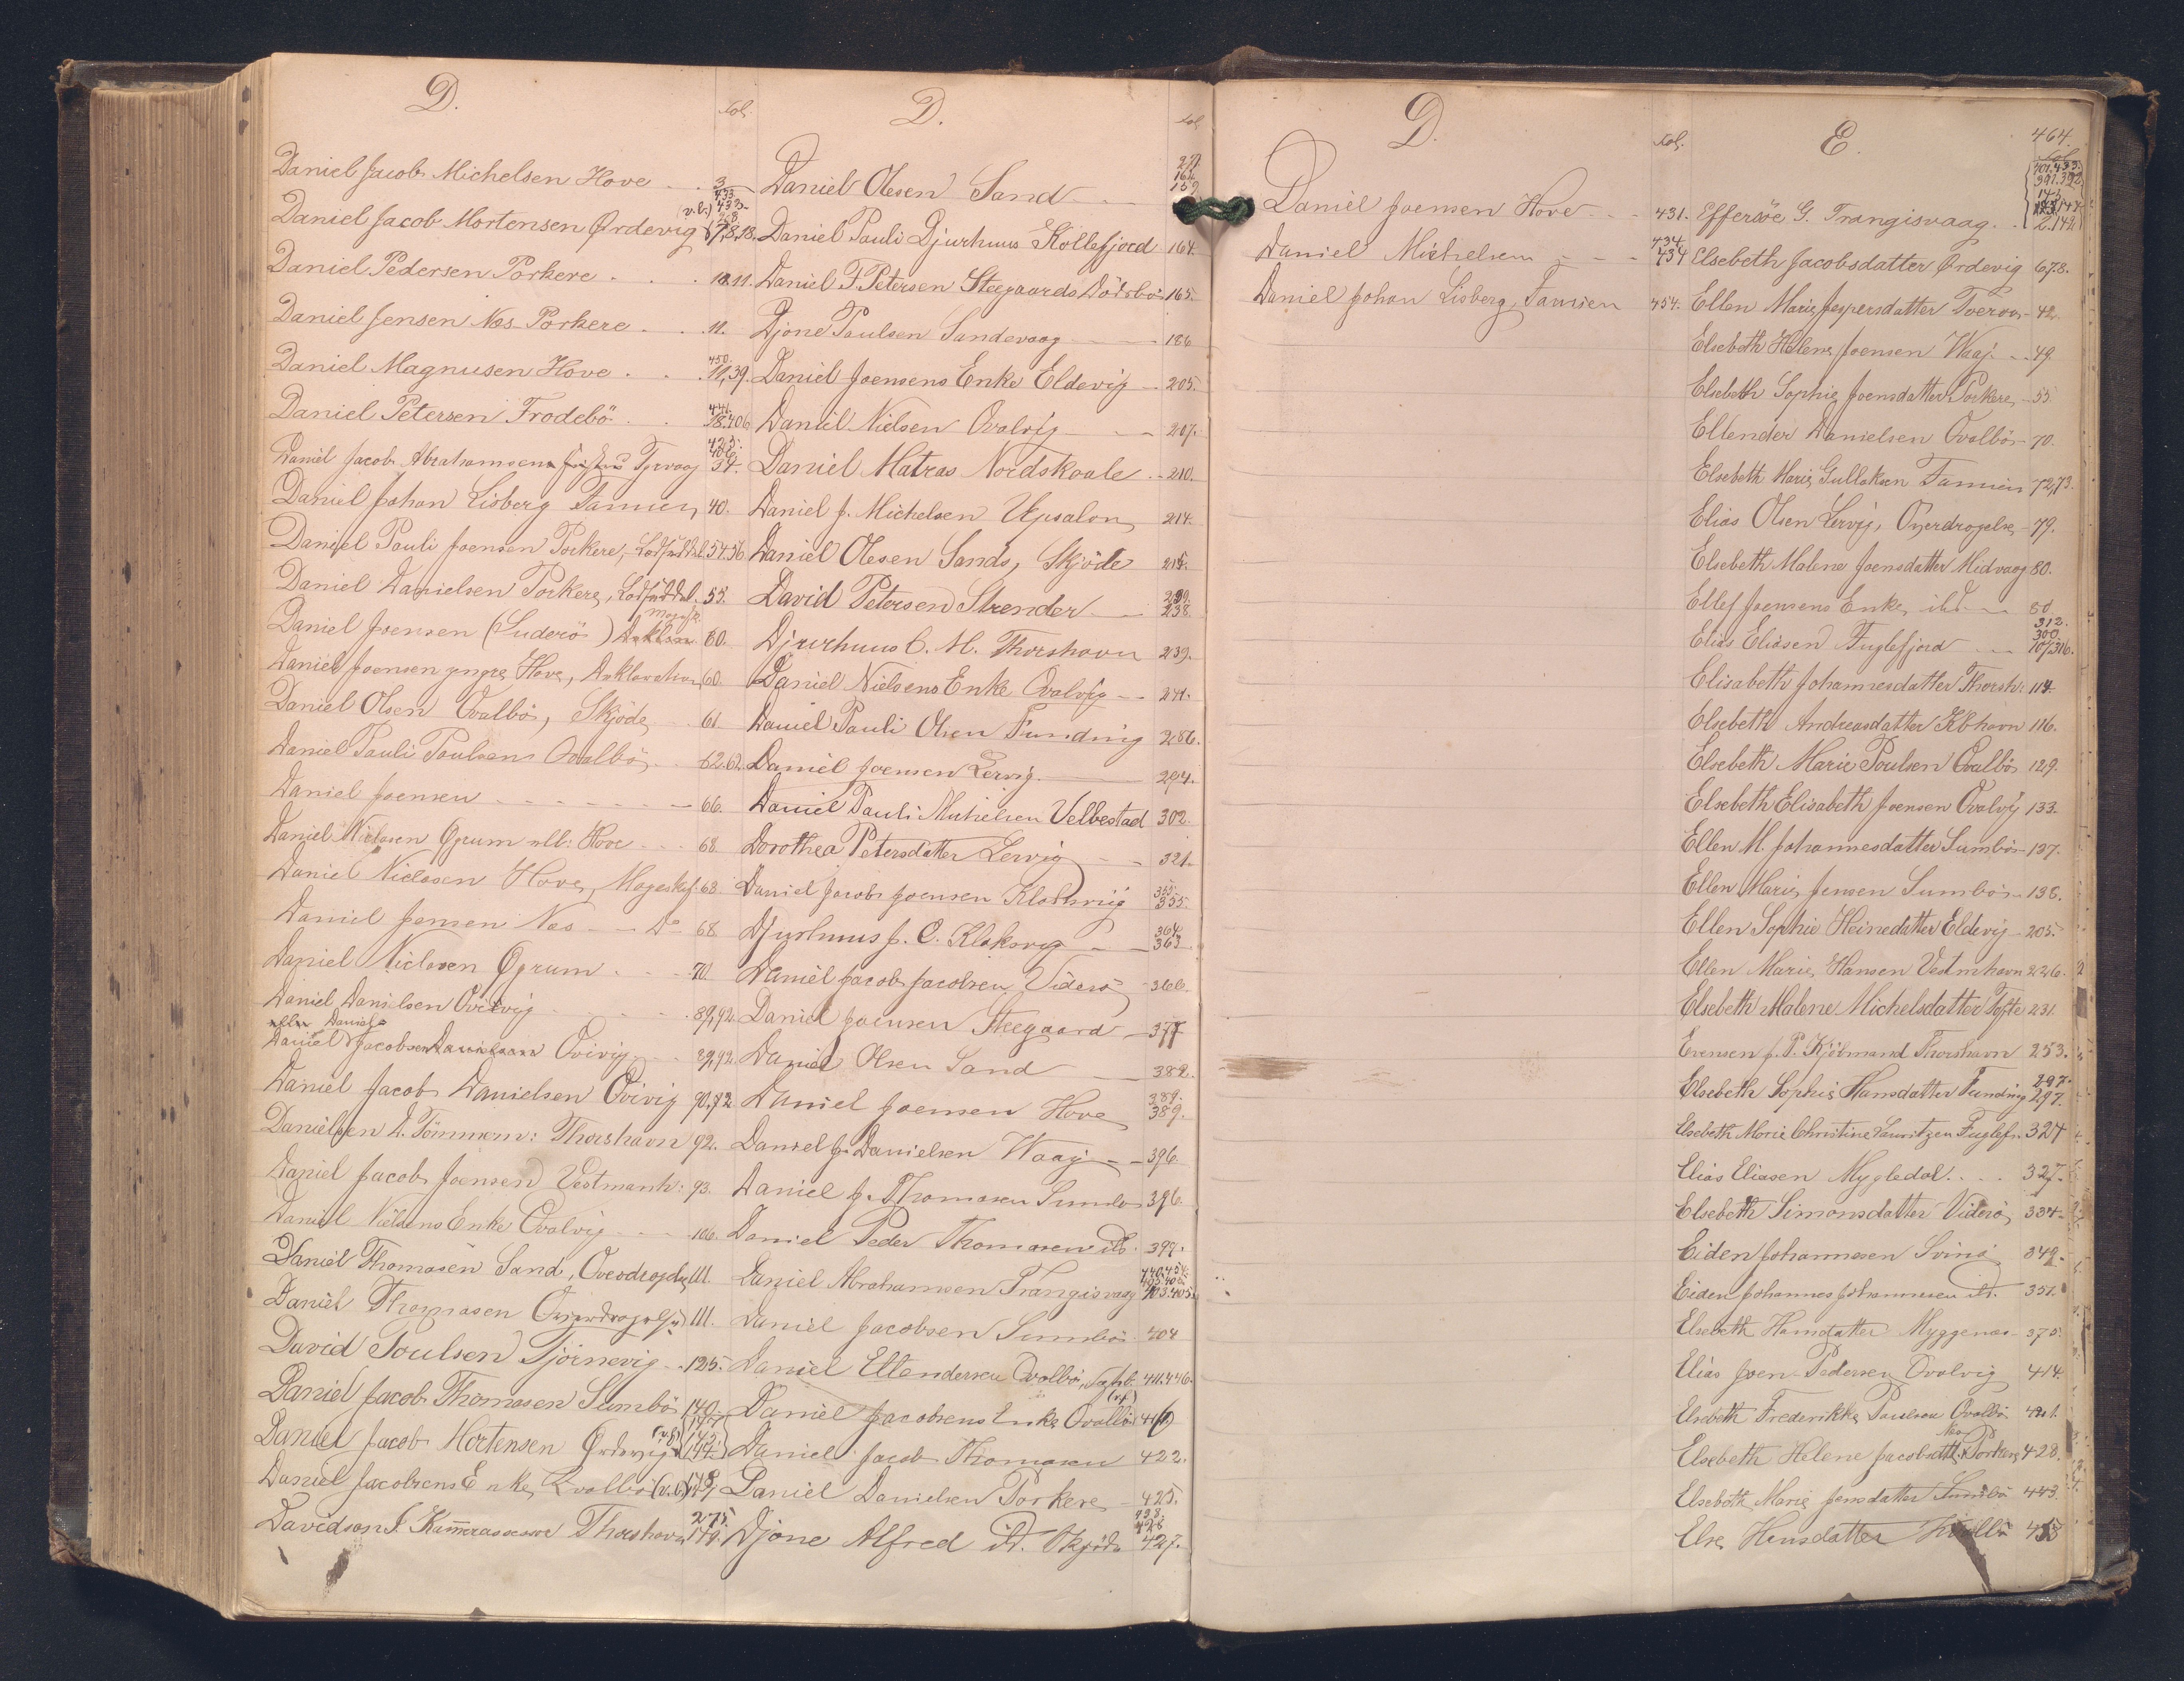 D.
Fol.
Daniel Jacob Michelsen Hove - - 3
433
Daniel Jacob Mortensen Ørdevig (v.b.) 7,8,18.
Daniel Pedersen Porkere . . . 10.11.
Daniel Jensen Næs Porkere . . . 11.
Daniel Magnusen Hove . . 450. 11,39.
Daniel Petersen Frodebö . . 441. 18.406
Daniel Jacob Abrahamsen Tjrvaag 34.
Daniel Johan Lisberg Famien 40.
Daniel Pauli Joensen Porkere, 54.56
Daniel Danielsen Porkere, 55.
Daniel Joensen (Suderö) 60.
Daniel Joensen yngre Hove, Deklaration 60.
Daniel Olsen Qvalbö, Skjöde 61.
Daniel Pauli Poulsens Qvalbö 62.62.
Daniel Joensen - - - - - - - 66.
Daniel Niclasen Øgrum Hove - - - 68
Daniel Niclasen Hove, Mageskf. 68
Daniel Jensen Næs - - Do 68
Daniel Niclasen Øgrum . . - 70.
Daniel Danielsen Qvivig . . . 89,92.
Daniel Jacobsen Qvivig - - 89,92.
Daniel Jacob Danielsen Qvivig 90,92
Danielsen D. Tömmerm: Thorshavn 92.
Daniel Jacob Joensen Vestmanh: 93.
Daniel Nielsens Enke Qvalvig - - - 106.
Daniel Thomasen Sand, Overdragelse 111.
Daniel Thomasen Overdragelse 111.
David Poulsen Tjörnevig - . 125.
Daniel Jacob Thomasen Sumbö 140.
Daniel Jacob Mortensen Ørdevig (v.b.)
Daniel Jacobsens Enke, Qvalbö (v.b.)
Davidson J. Kammerassessor Thorshavn 275. 179.
D.
Fol
Daniel Olesen Sand - - 159
Daniel Pauli Djurhuus Kollefjord 164.
Daniel P. Petersen Steegaards Dödsbo 165.
Djone Poulsen Sandevaag - - - 186
Daniel Joensens Enke Eldevig - 205.
Daniel Nielsen Qvalvig - - 207.
Daniel Matras Nordskaale . - 210.
Daniel J. Michelsen Upsalon 214.
Daniel Olesen Sands, Skjöde 215.
David Petersen Strender - 238.
Djurhuus C. M. Thorshavn 239.
Daniel Nielsens Enke Qvalvig - - 241.
Daniel Pauli Olsen Funding 286.
Daniel Joensen Lervig. - 294.
Daniel Pauli Michelsen Velbestad 302.
Dorothea Petersdatter Lervig - - 321.
Daniel Jacob Joensen Klaksvig 355.
Djurhuus J. C. Klaksvig - - 364. 363
Daniel Jacob Jacobsen Viderö 366.
Daniel Joensen Steegaard - 377
Daniel Olsen Sand - 382.
Daniel Joensen Hove 389. 389.
Daniel J. Danielsen Waag - - 396
Daniel J. Thomasen Sumbö 396
Daniel Peder Thomasen ib. 397.
Daniel Abrahamsen Trangisvaag 403.405.
Daniel Jacobsen Sumbö 404
Daniel Ellendersen Qvalbö, 411.446.
Daniel Jacobsens Enke Qvalbö 416
Daniel Jacob Thomasen 422.
Daniel Danielsen Porkere - 425.
Djone Alfred ib. Skjöde 427.
D.
Fol.
Daniel Joensen Hove - - - 431.
Daniel Michelsen - - - 434. 434
Daniel Johan Lisberg, Famien 454.
E.
464.
Fol.
Effersöe G. Trangisvaag. . 2.142
Elsebeth Jacobsdatter Ørdevig 67.8.
Ellen Marie Jespersdatter Tveraa - 42.
Elsebeth Helene Joensen Waag. - - 49.
Elsebeth Sophie Joensdatter Porkere, - 55.
Ellender Danielsen Qvalbö - 70.
Elsebeth Marie Gullaksen Famien 72,73.
Elias Olsen Lervig, Overdragelse - 79.
Elsebeth Malene Joensdatter Midvaag 80.
Ellef Joensens Enke, ibd. - - 80
312.
300.
Elias Eliasen Fuglefjord - - 107.316.
Elisabeth Johannesdatter Thorsh: 114.
Elsebeth Andreasdatter Kbhavn 116.
Elsebeth Marie Poulsen Qvalbö 129.
Elsebeth Elisabeth Joensen Qvalvig 133.
Ellen M. Johannesdatter Sumbö - 137.
Ellen Marie Jensen Sumbö - - 138.
Ellen Sophie Heinedatter Eldevig - 205.
Ellen Marie Hansen Vestmhavn 226.
Elsebeth Malene Michelsdatter Tofte 231.
Evensen J. P. Kjöbmand Thorshavn 253.
Elsebeth Sophie Hansdatter Funding 297. 297.
Elsebeth Marie Christine Lauritzen Fuglef. 324
Elias Eliasen Mygledal. . . . 327.
Elsebeth Simonsdatter Viderö, 334.
Eiden Johannesen Svinö 349.
Eiden Johannes Johannesen ib. 351.
Elsebeth Hansdatter Myggenæs - 375.
Elias Joen Pedersen Qvalvig 414.
Elsebeth Frederikke Poulsen Qvalbö 421.
Elsebeth Helene Jacobsdtt. Næs Porkere 428.
Elsebeth Marie Jensdatter Sumbö 443.
Else Hansdatter Kvalbö 458